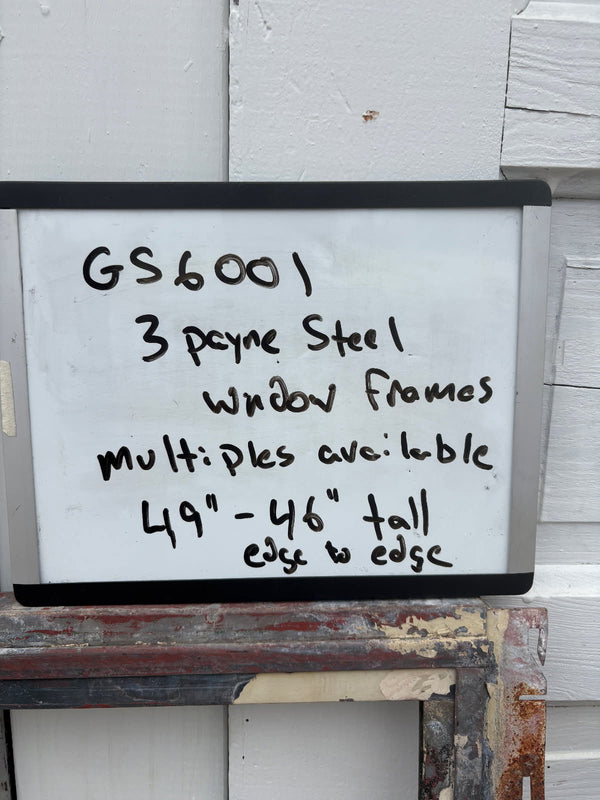 GS6001
3 payne Steel
window frames
multiples available
49" - 46" tall
edge to edge